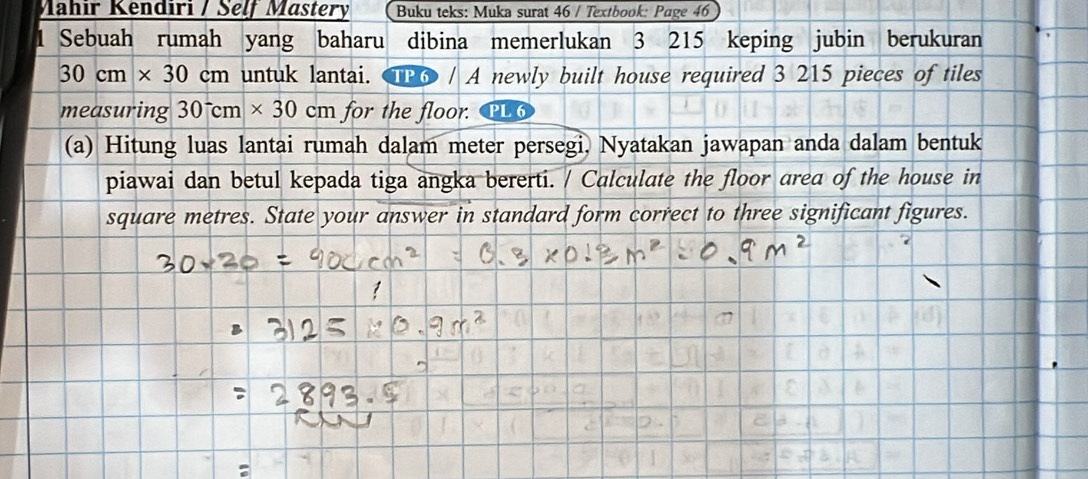 Mahir Kendiri / Self Mastery Buku teks: Muka surat 46 / Textbook: Page 46
1 Sebuah rumah yang baharu dibina memerlukan 3 215 keping jubin berukuran
30 cm × 30 cm untuk lantai. TP 6 / A newly built house required 3 215 pieces of tiles
measuring 30 cm × 30 cm for the floor. PL 6
(a) Hitung luas lantai rumah dalam meter persegi. Nyatakan jawapan anda dalam bentuk
piawai dan betul kepada tiga angka bererti. / Calculate the floor area of the house in
square metres. State your answer in standard form correct to three significant figures.
30×30 = 900 cm² = 0.3 × 0.3 m² = 0.9 m²
= 3125 × 0.9 m²
= 2893.5
=